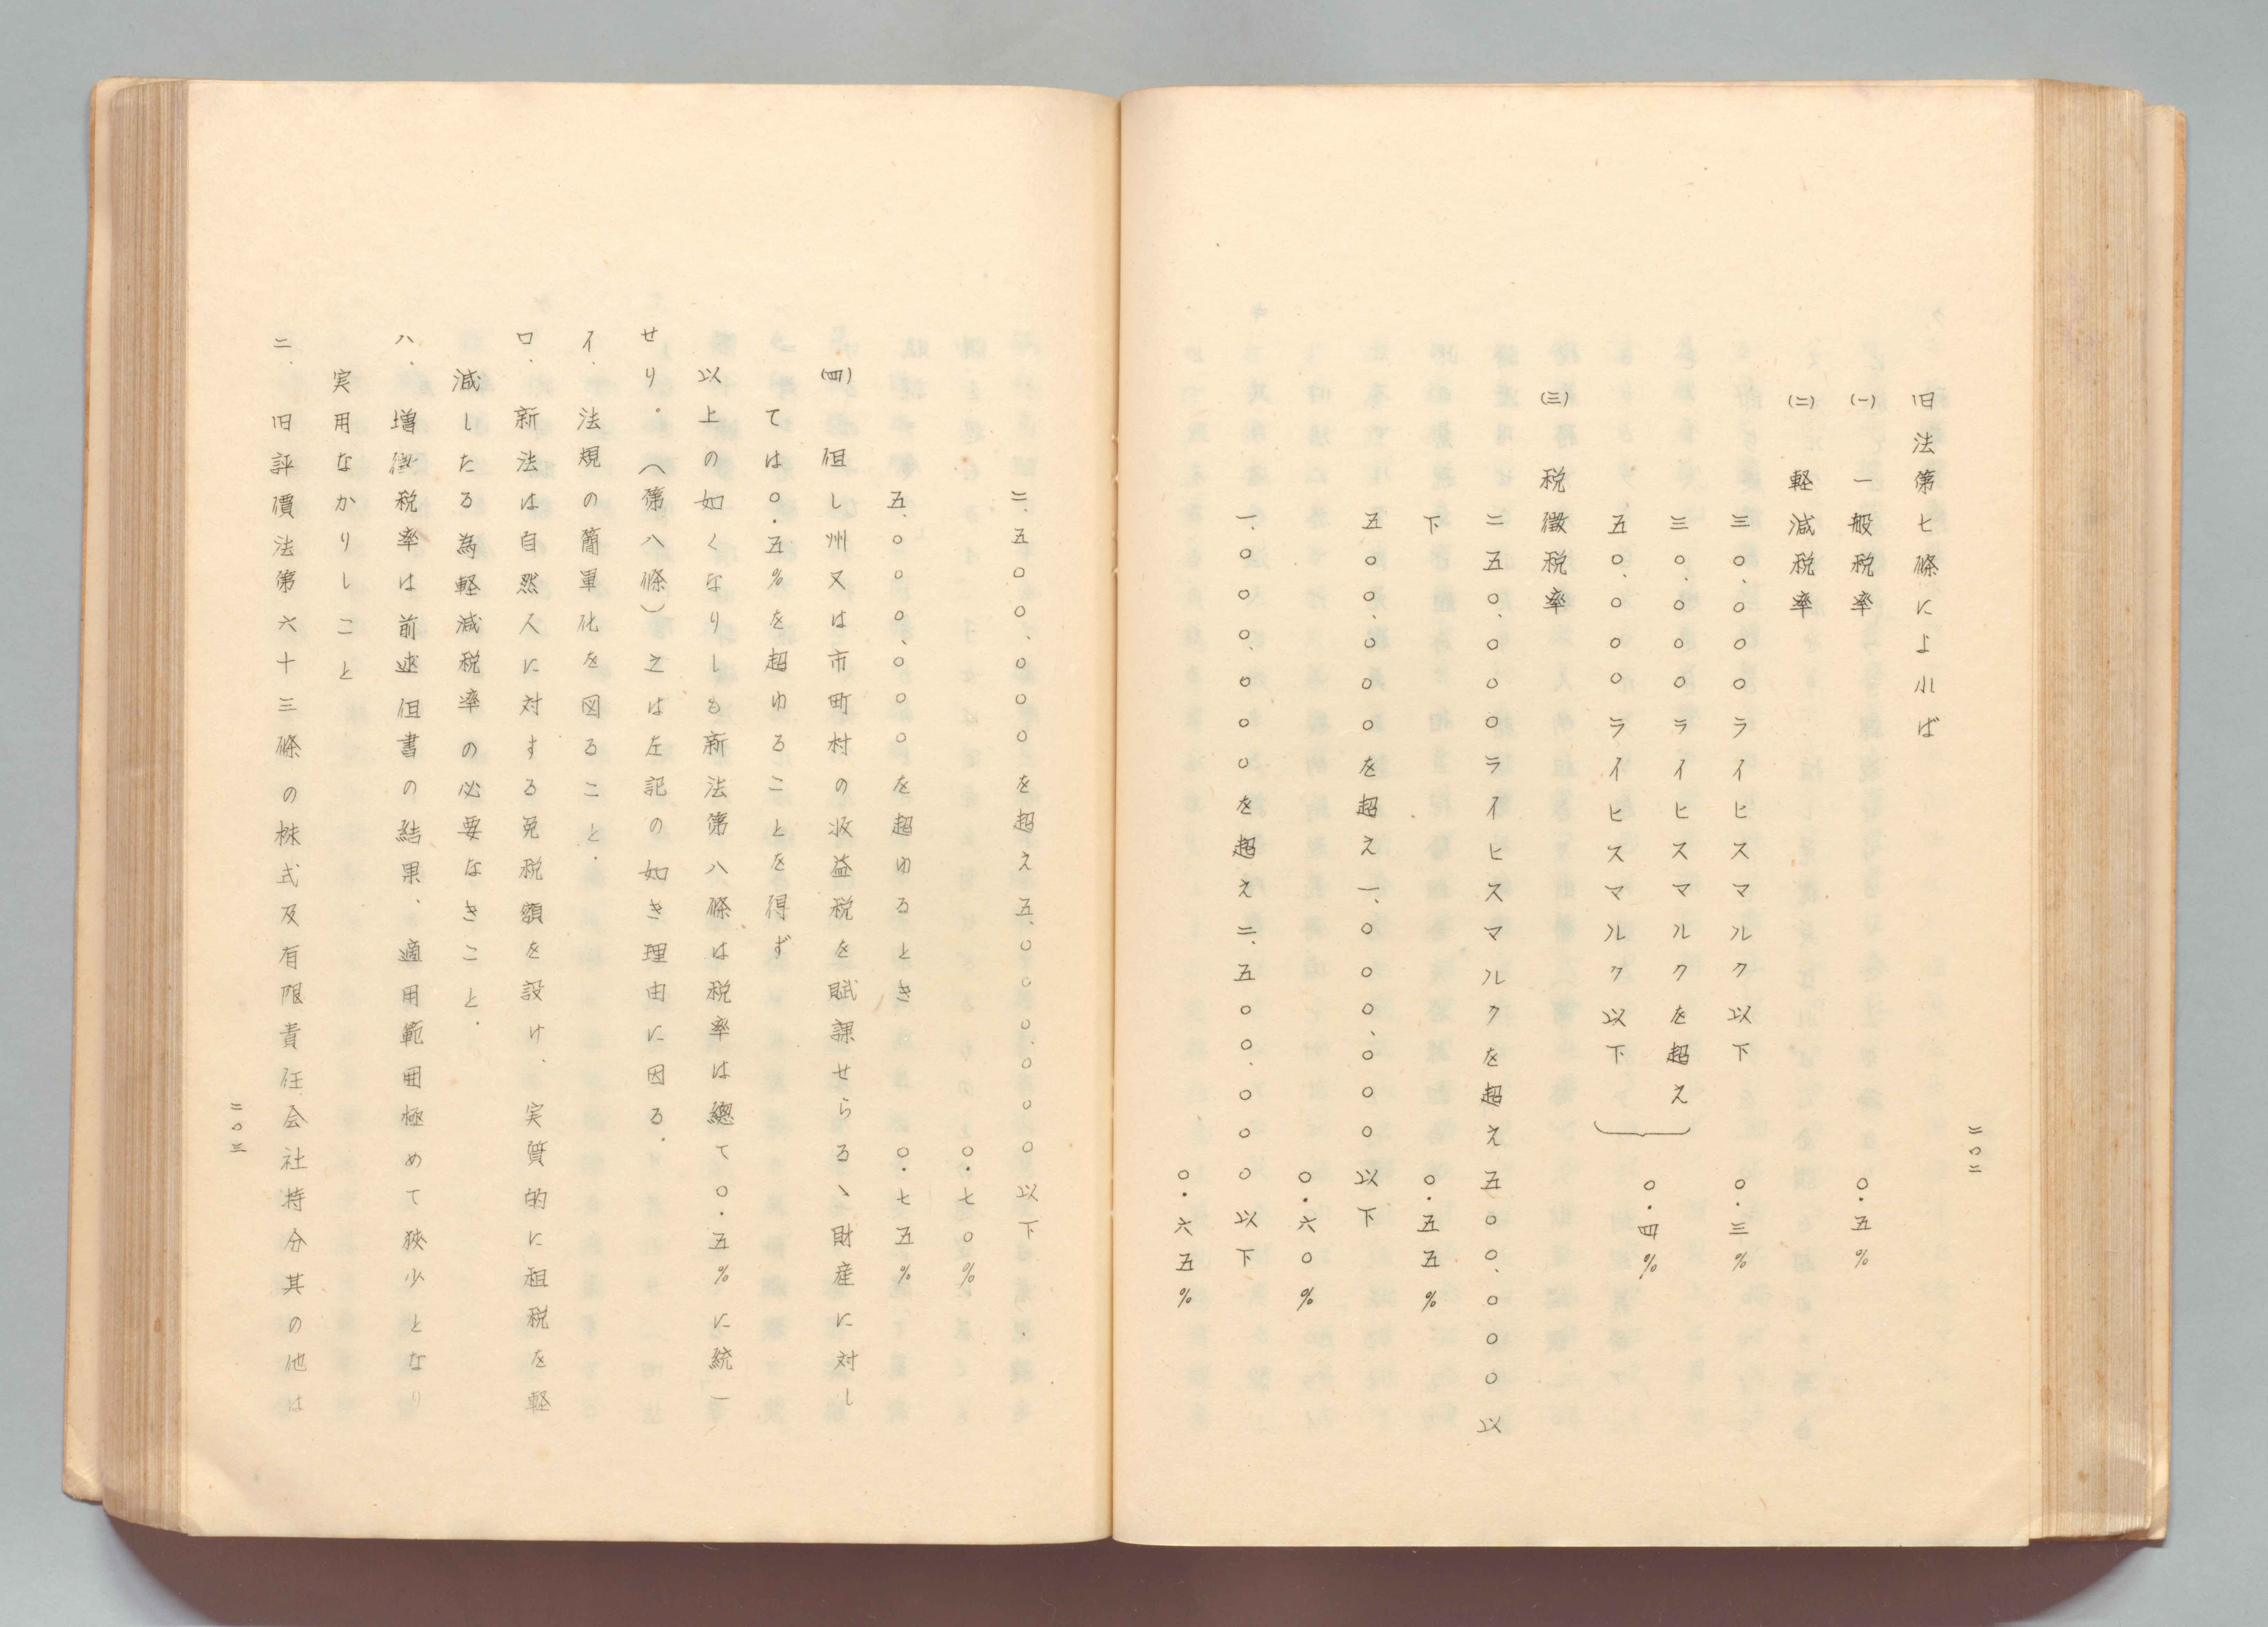 二〇二
旧法第七條によれば
(一) 一般税率 〇.五%
(二) 軽減税率
三〇、〇〇〇ライヒスマルク以下 〇.三%
三〇、〇〇〇ライヒスマルクを超え
五〇、〇〇〇ライヒスマルク以下 〇.四%
(三) 税徴税率
二五〇、〇〇〇ライヒスマルクを超え五〇〇、〇〇〇以
下 〇.五五%
五〇〇、〇〇〇を超え一、〇〇〇、〇〇〇以下
〇.六〇%
一、〇〇〇、〇〇〇を超え二、五〇〇、〇〇〇以下
〇.六五%
二、五〇〇、〇〇〇を超え五、〇〇〇、〇〇〇以下
〇.七〇%
五、〇〇〇、〇〇〇を超ゆるとき 〇.七五%
(四) 但し州又は市町村の収益税を賦課せらるゝ財産に対し
ては〇.五%を超ゆることを得ず
以上の如くなりしも新法第八條は税率は總て〇.五%に統一
せり。(第八條)之は左記の如き理由に因る.
イ. 法規の簡單化を図ること.
ロ. 新法は自然人に対する免税額を設け、実質的に租税を軽
減したる為軽減税率の必要なきこと.
ハ. 増徴税率は前述但書の結果、適用範囲極めて狭少となり
実用なかりしこと
ニ. 旧評價法第六十三條の株式及有限責任会社持分其の他は
二〇三